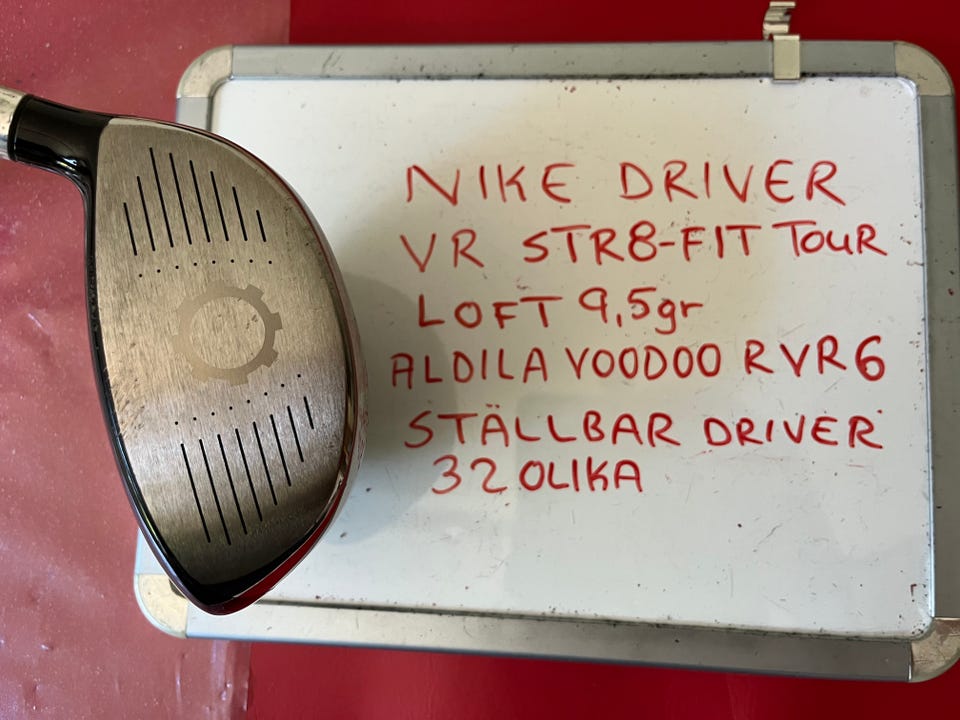 NIKE DRIVER
VR STR8-FIT TOUR
LOFT 9,5gr
ALDILA VOODOO RVR6
STÄLLBAR DRIVER
32 OLIKA